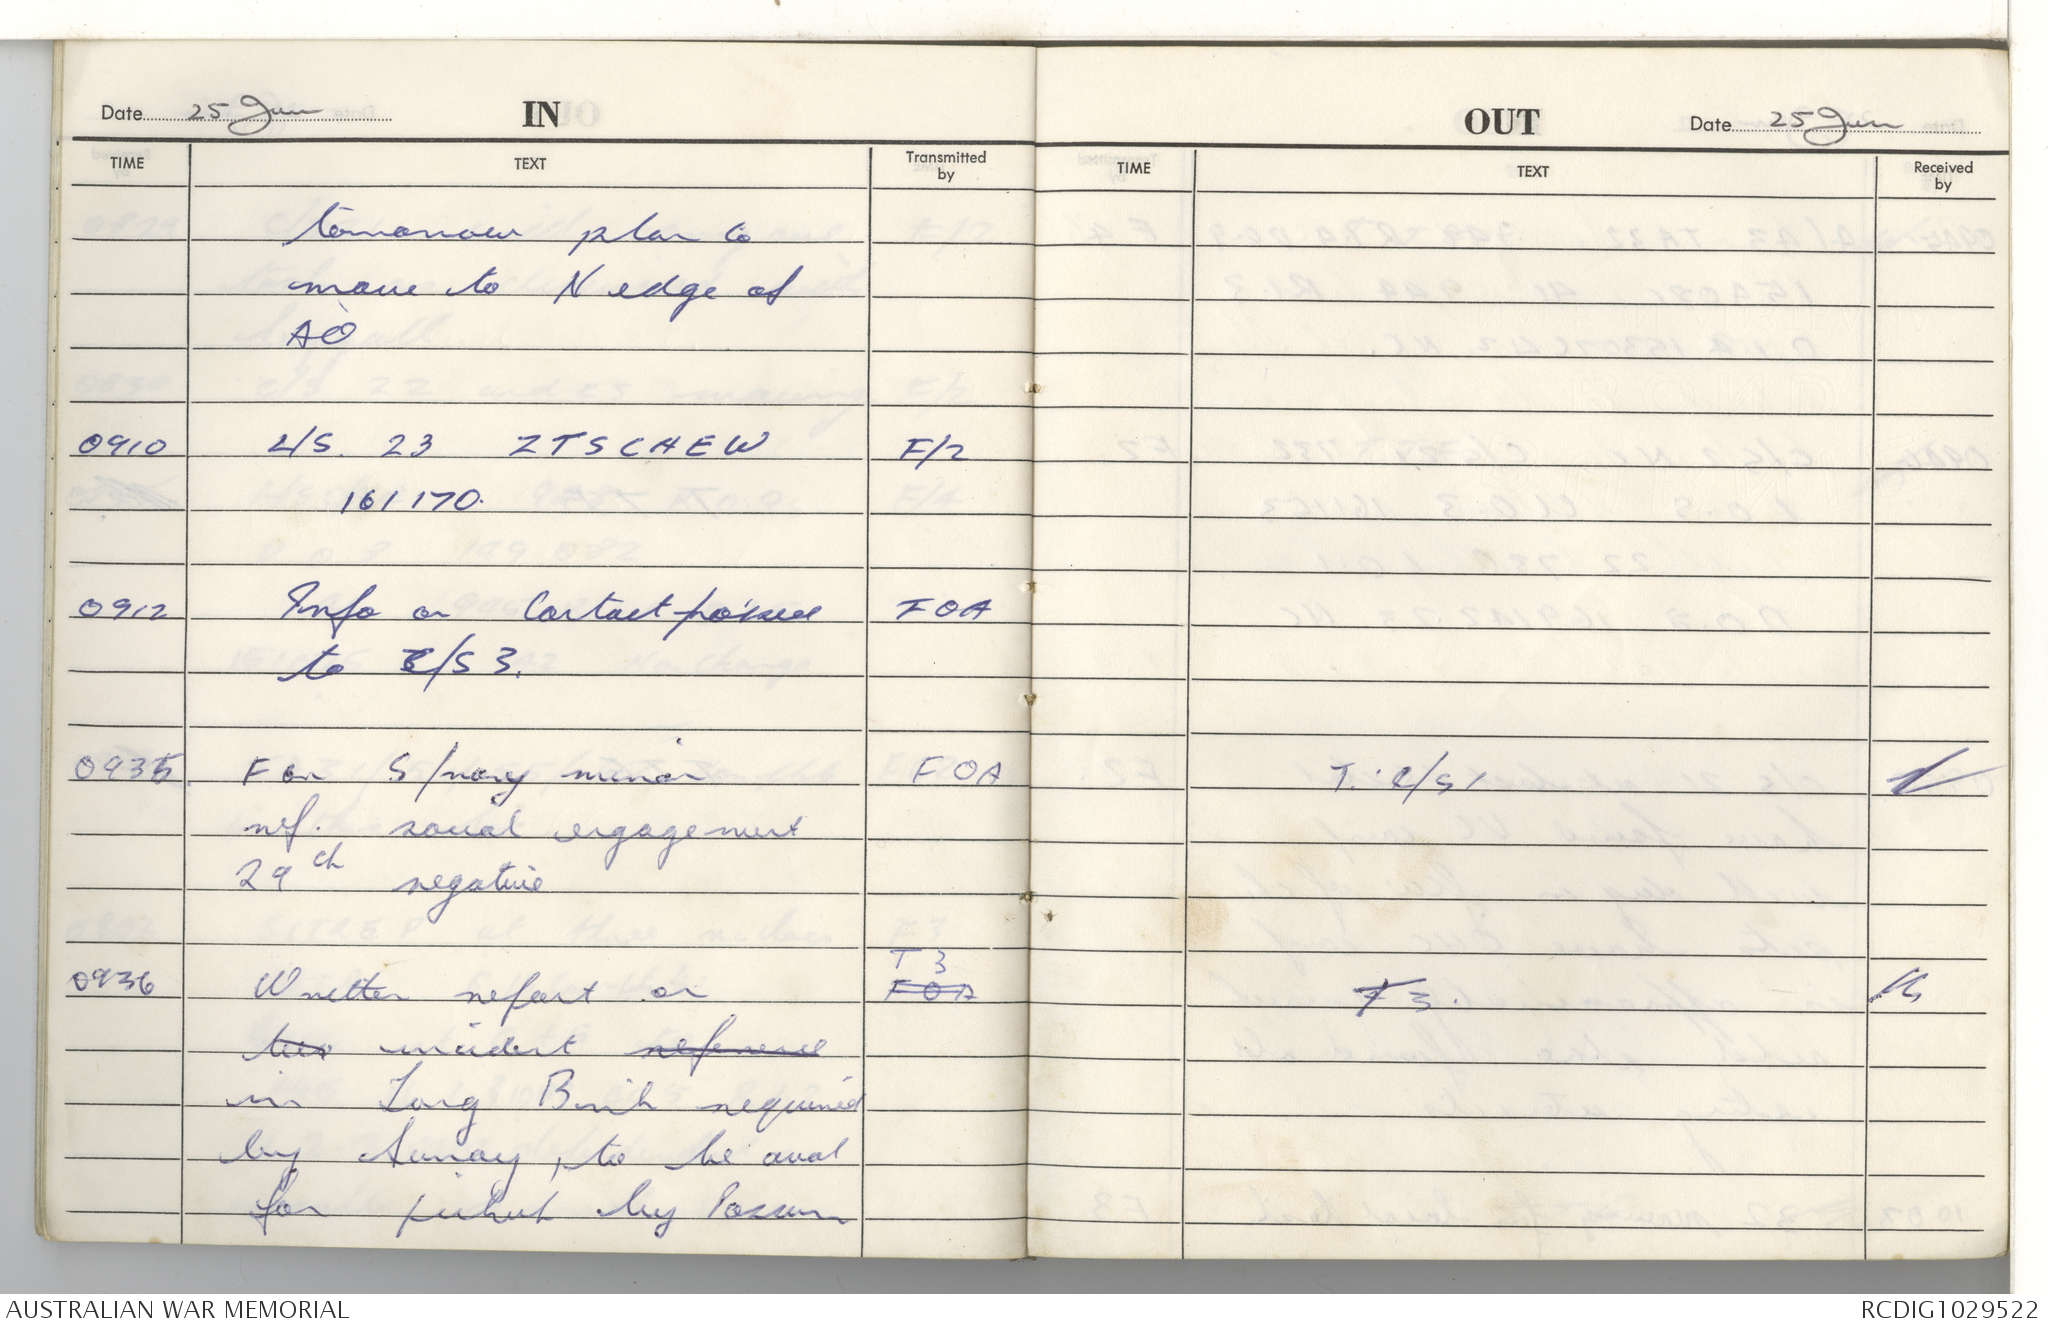 Date 25 Jun IN
TIME TEXT Transmitted by
tomorrow plan to
move to N edge of
AO
0910 L/S. 23 ZTSCHEW F/2
161170.
0912 Info on Contact passed FOA
to C/S 3.
0935 For S/ray minor FOA
ref. social engagement
29th negative
T3
0936 Written report on FOA
two incident reference
in Long Binh required
by Sunray, to be aval
for pickup by Possum
OUT Date 25 Jun
TIME TEXT Received by
T. C/S 1
F 3.
AUSTRALIAN WAR MEMORIAL
RCDIG1029522